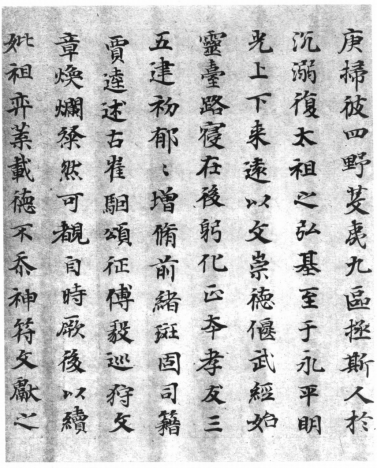 庚掃彼四野芟夷九區拯斯人於
沉溺復太祖之弘基至于永平明
光上下来遠以文崇德偃武經始
靈臺路寑在後躬化正夲孝友三
五建初郁〻增脩前緒斑固司籍
賈逵述古崔駰頌征傅毅巡狩文
章煥爛粲然可覩自時厥後以續
妣祖弈葉載德不忝神符文獻之